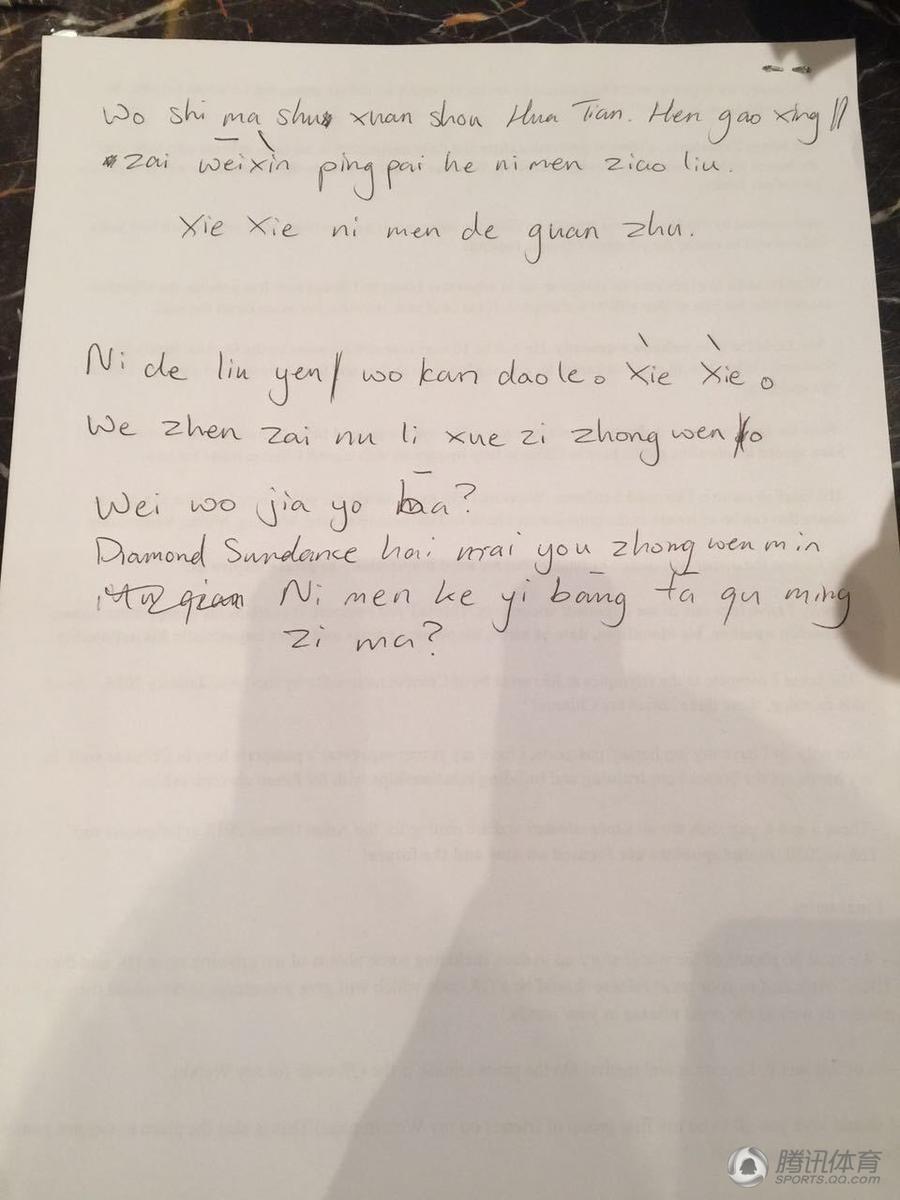 Wo shi ma shu xuan shou Hua Tian. Hen gao xing
zai weixìn ping pai he ni men ziao liu.
Xie Xie ni men de guan zhu.
Ni de liu yen wo kan daole。Xìe Xìe。
We zhen zai nu li xue zi zhong wen。
Wei wo jia yo bā?
Diamond Sundance hai mai you zhong wen min
Ni men ke yi bāng tā qu ming
zi ma?
腾讯体育
SPORTS.QQ.COM